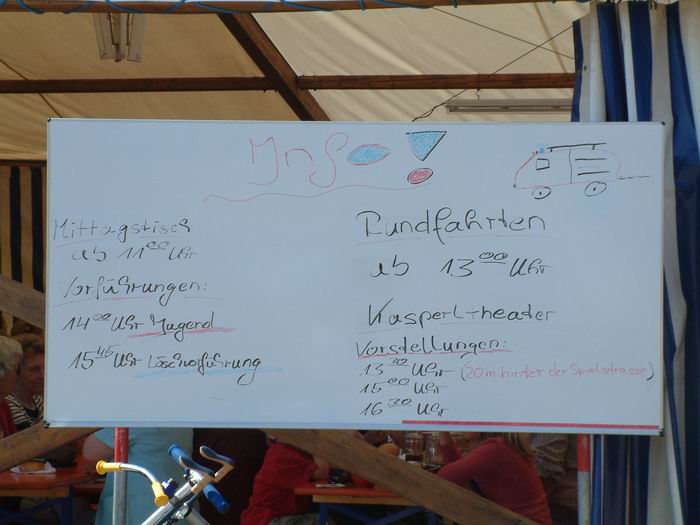 Info!
Mittagstisch
ab 11 00 Uhr
Vorführungen:
14 00 Uhr Jugend
15 45 Uhr Löschvorführung
Rundfahrten
ab 13 00 Uhr
Kasperltheater
Vorstellungen:
13 30 Uhr (20m hinter der Spielstrasse)
15 00 Uhr
16 30 Uhr